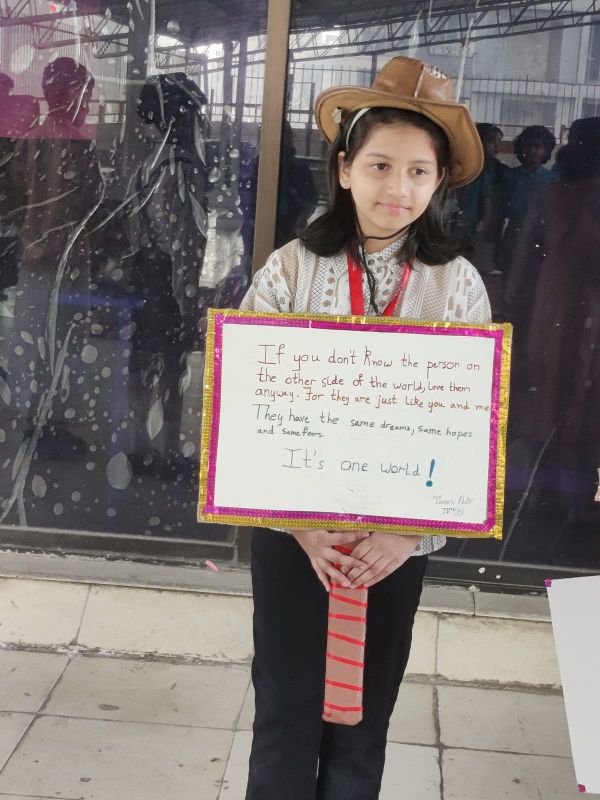 If you don't know the person on
the other side of the world, love them
anyway. For they are just like you and me
They have the same dreams, same hopes
and same fears.
It's one world!